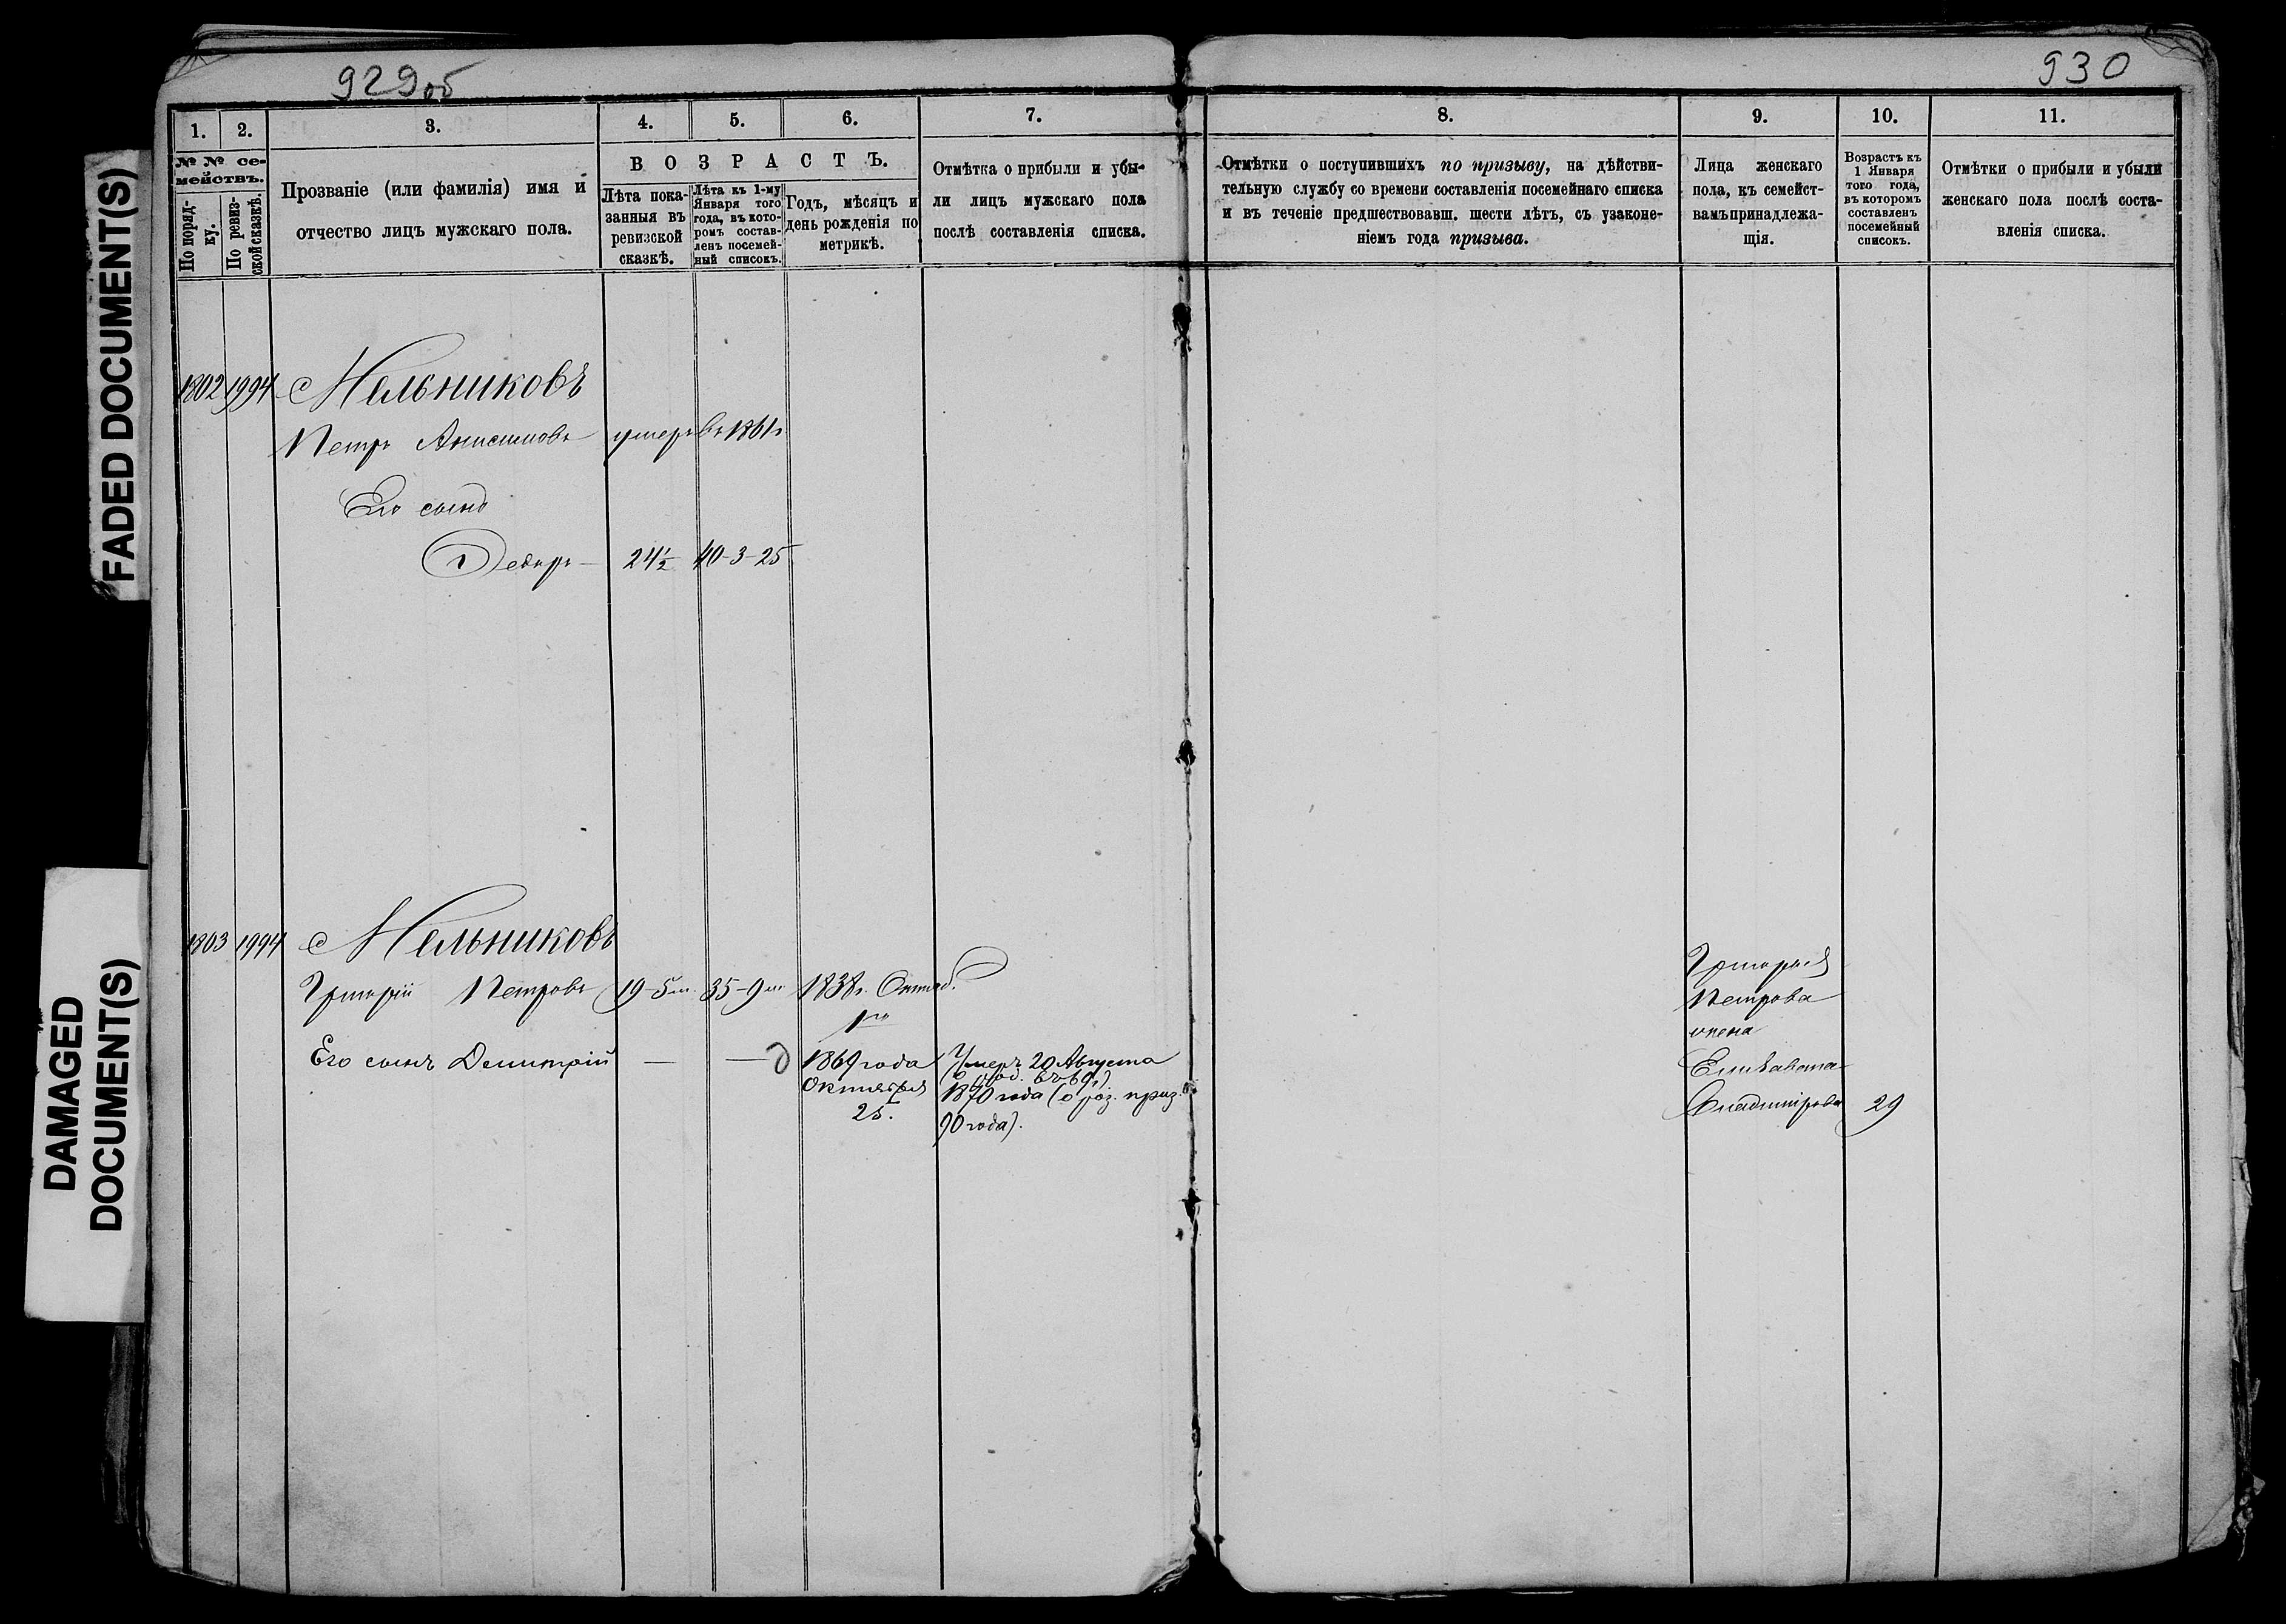 929об
930
FADED DOCUMENT(S)
DAMAGED
DOCUMENT(S)
1.
2.
3.
4.
5.
6.
7.
8.
9.
10.
11.
№ № се-
мействъ.
По поряд-
ку.
По ревиз-
ской сказкѣ.
Прозваніе (или фамилія) имя и
отчество лицъ мужскаго пола.
ВОЗРАСТЪ.
Лѣта пока-
занныя въ
ревизской
сказкѣ.
Лѣта къ 1-му
Января того
года, въ кото-
ромъ состав-
ленъ посемей-
ный списокъ.
Годъ, мѣсяцъ и
день рожденія по
метрикѣ.
Отмѣтка о прибыли и убы-
ли лицъ мужскаго пола
послѣ составленія списка.
Отмѣтки о поступившихъ по призыву, на дѣйстви-
тельную службу со времени составленія посемейнаго списка
и въ теченіе предшествовавш. шести лѣтъ, съ узаконе-
ніемъ года призыва.
Лица женскаго
пола, къ семейст-
вамъ принадлежа-
щія.
Возрастъ къ
1 Января
того года,
въ которомъ
составленъ
посемейный
списокъ.
Отмѣтки о прибыли и убыли
женскаго пола послѣ соста-
вленія списка.
1802 1994 Мельниковъ
Петръ Анисимовъ умеръ въ 1861г
Его сынъ
Ѳедоръ 24½ 40-3-25
1803 1994 Мельниковъ
Григорій Петровъ 19-5м. 35-9м 1838г. Октяб.
1го
Его сынъ Димитрій — —
1869 года
Октября
25.
Умеръ 20 Августа
(род. въ 69г.)
1870 года (о роз. приз.
90 года).
Григорья
Петрова
жена
Елизавета
Владимірова 29